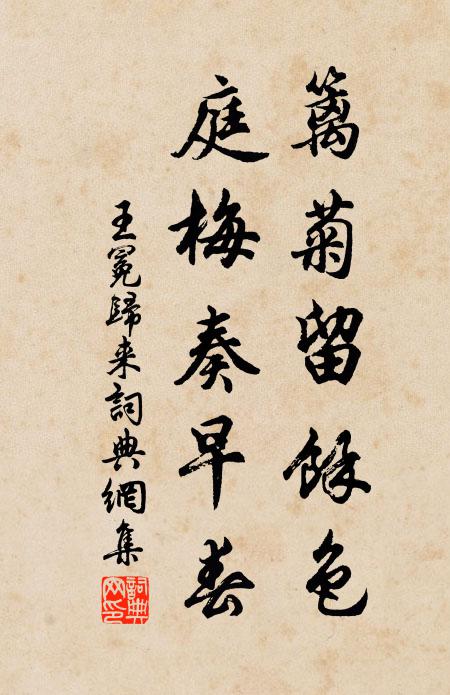 籬菊留餘色
庭梅奏早春
王冕歸来詞典網集
詞典网印